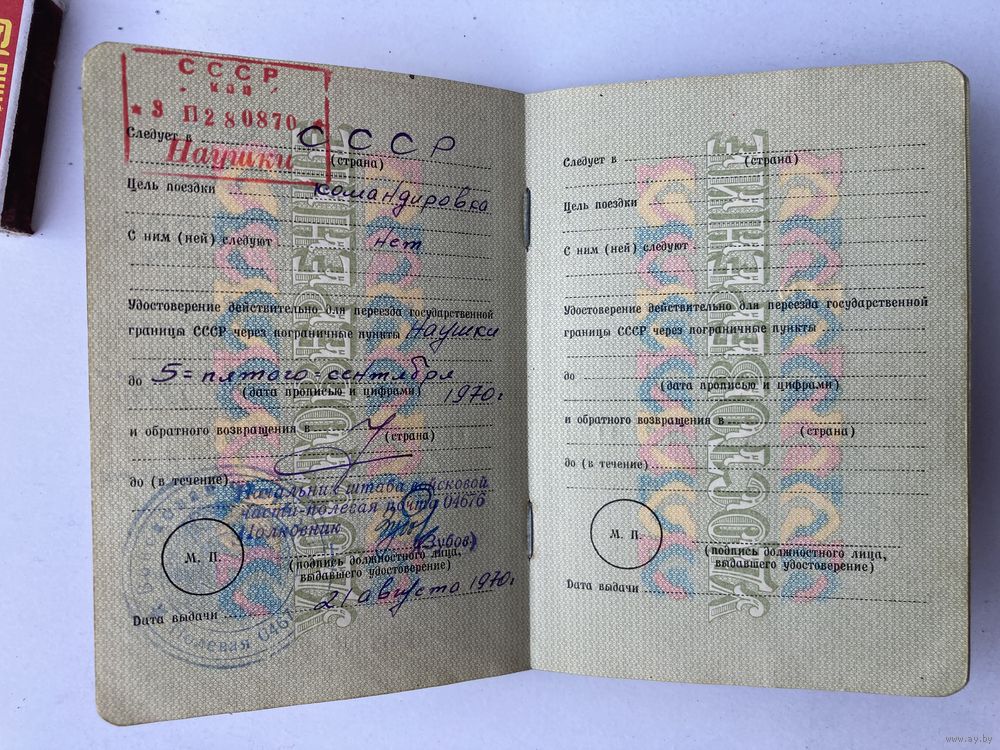 СССР
КПП
* 3 П280870 *
Наушки
Следует в СССР
(страна)
Цель поездки командировка
С ним (ней) следуют нет
Удостоверение действительно для переезда государственной
границы СССР через пограничные пункты Наушки
до 5=пятого=сентября
(дата прописью и цифрами) 1970г
и обратного возвращения в
(страна)
до (в течение)
Начальник штаба войсковой
части-полевая почта 04676
Полковник
(Зубов)
М. П.
(подпись должностного лица,
выдавшего удостоверение)
21 августа 1970г
Дата выдачи
Полевая 0467
УДОСТОВЕРЕНИЕ
Следует в
(страна)
Цель поездки
С ним (ней) следуют
Удостоверение действительно для переезда государственной
границы СССР через пограничные пункты
до
(дата прописью и цифрами)
и обратного возвращения в
(страна)
до (в течение)
М. П.
(подпись должностного лица,
выдавшего удостоверение)
Дата выдачи
УДОСТОВЕРЕНИЕ
www.ay.by